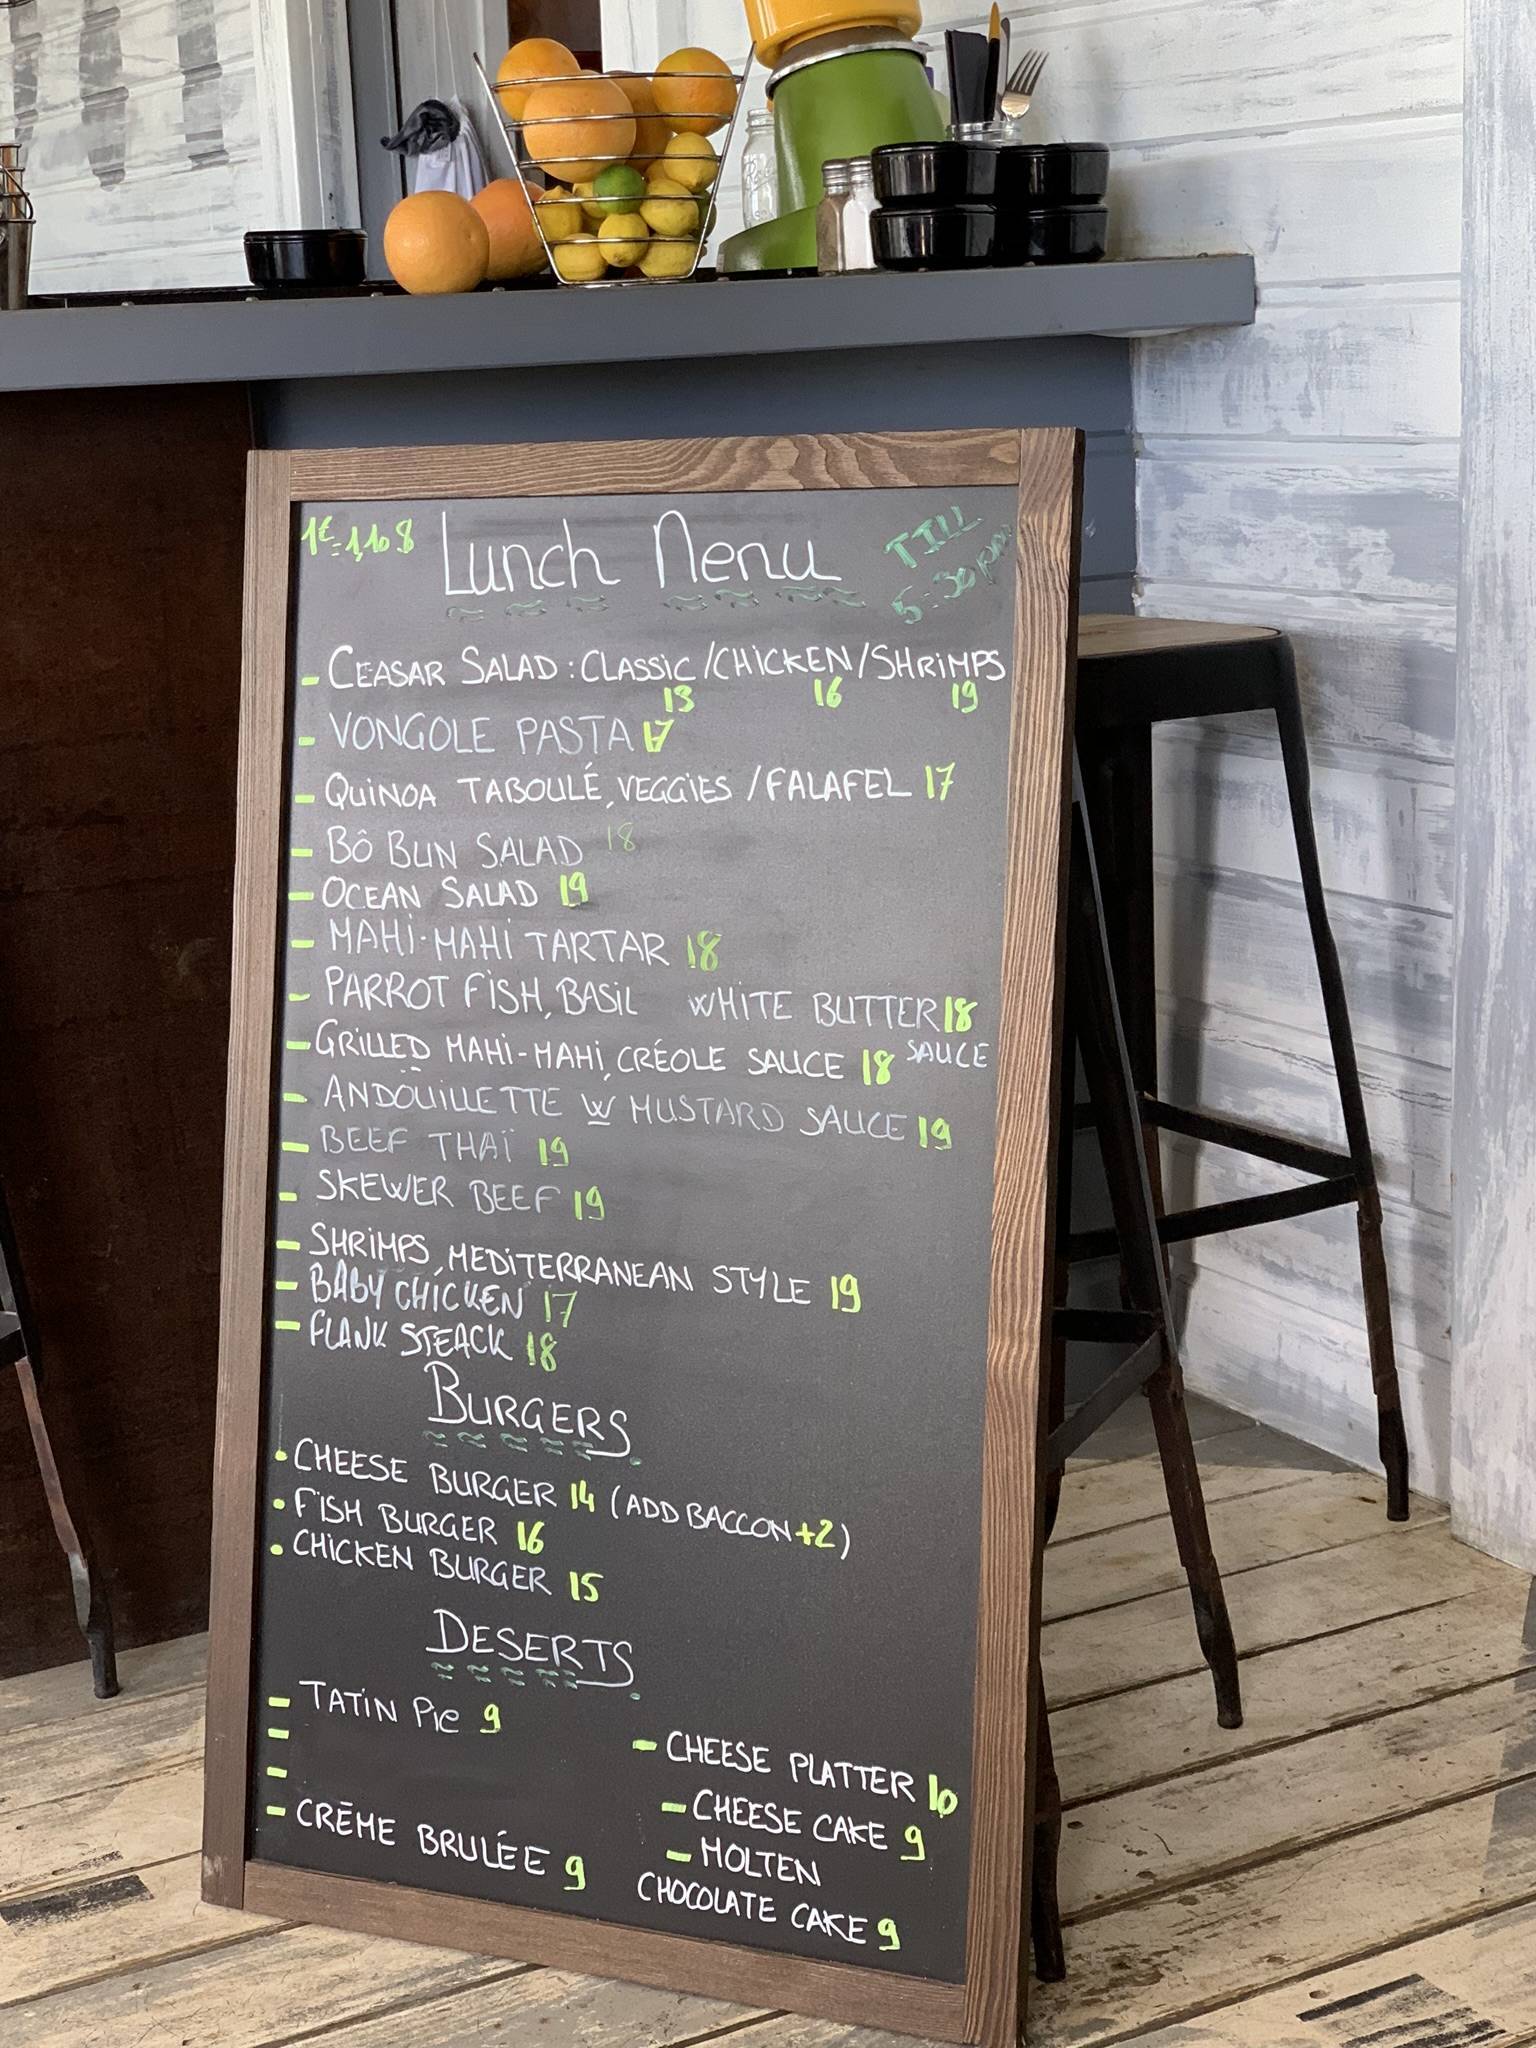 1€=1,10$ Lunch Menu TILL
5:30pm
- CEASAR SALAD : CLASSIC / CHICKEN / SHRIMPS
13 16 19
- VONGOLE PASTA 17
- QUINOA TABOULÉ, VEGGIES / FALAFEL 17
- BÔ BUN SALAD 18
- OCEAN SALAD 19
- MAHI-MAHI TARTAR 18
- PARROT FISH, BASIL WHITE BUTTER 18
SAUCE
- GRILLED MAHI-MAHI, CRÉOLE SAUCE 18
- ANDOUILLETTE W MUSTARD SAUCE 19
- BEEF THAÏ 19
- SKEWER BEEF 19
- SHRIMPS, MEDITERRANEAN STYLE 19
- BABY CHICKEN 17
- FLANK STEACK 18
BURGERS
• CHEESE BURGER 14 (ADD BACCON +2)
• FISH BURGER 16
• CHICKEN BURGER 15
DESERTS
- TATIN PIE 9
-
-
- CRÊME BRULÉE 9
- CHEESE PLATTER 10
- CHEESE CAKE 9
- MOLTEN
CHOCOLATE CAKE 9